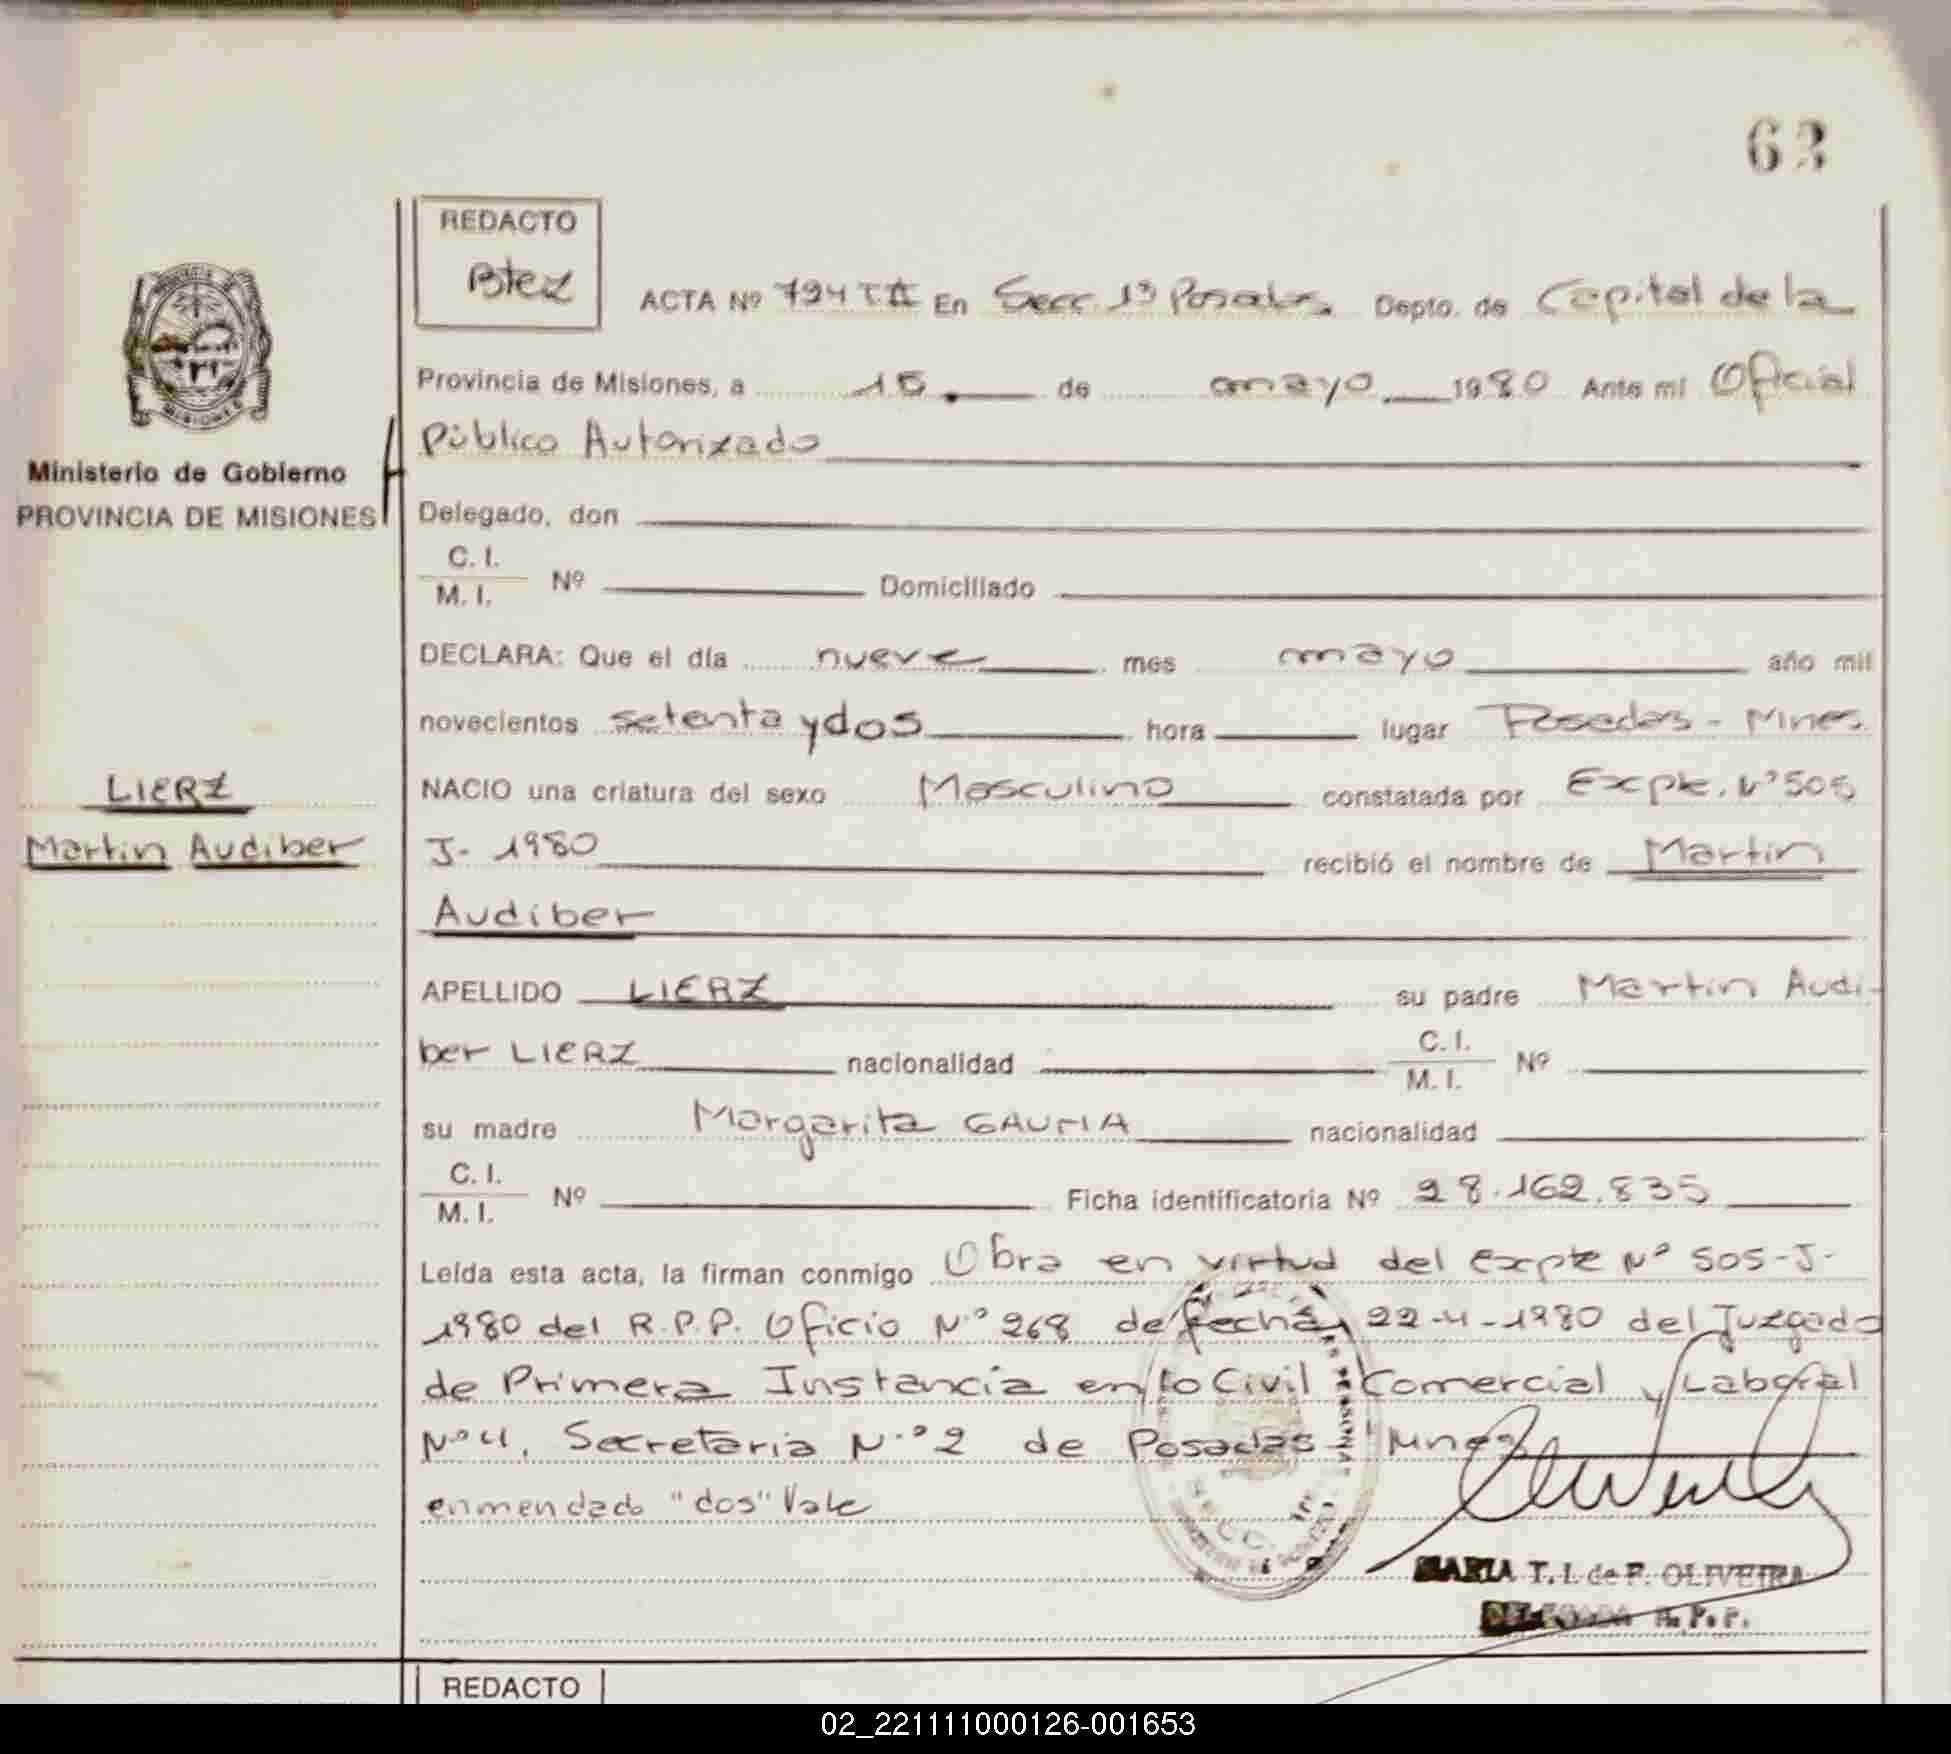 63
REDACTO
Btez
ACTA Nº 794 TA En Secc. 1ª Posadas. Depto. de Capital de la
Provincia de Misiones, a 15 de mayo 1980 Ante mi Oficial
Público Autorizado
Ministerio de Gobierno
PROVINCIA DE MISIONES
Delegado, don
C. I.
M. I. Nº Domiciliado
DECLARA: Que el día nueve mes mayo año mil
novecientos setenta y dos hora lugar Posadas - Mnes.
LIERZ
NACIO una criatura del sexo Masculino constatada por Expte. Nº 505
Martin Audiber
J- 1980 recibió el nombre de Martin
Audiber
APELLIDO LIERZ su padre Martin Audi-
ber LIERZ nacionalidad C. I. M. I. Nº
su madre Margarita GAUNA nacionalidad
C. I.
M. I. Nº Ficha identificatoria Nº 28.162.835
Leída esta acta, la firman conmigo Obra en virtud del Expte Nº 505-J-
1980 del R.P.P. Oficio N.º 268 de fecha 22-4-1980 del Juzgado
de Primera Instancia en lo Civil Comercial y Laboral
Nº 4, Secretaria N.º 2 de Posadas - Mnes
enmendado "dos" Vale
MARIA T. I. de F. OLIVEIRA
DELEGADA R. P. P.
REDACTO
02_221111000126-001653